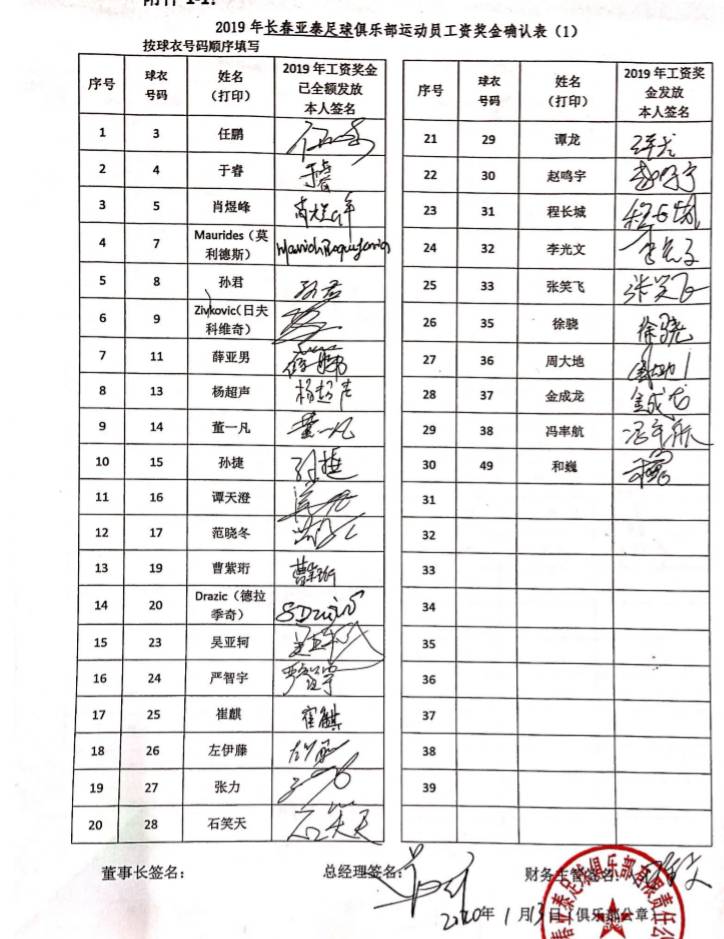 附件 1-1:
2019 年长春亚泰足球俱乐部运动员工资奖金确认表（1）
按球衣号码顺序填写
序号 球衣号码 姓名（打印） 2019 年工资奖金已全额发放本人签名
1 3 任鹏
2 4 于睿 于睿
3 5 肖煜峰
4 7 Maurides（莫利德斯）
5 8 孙君 孙君
6 9 Zivkovic（日夫科维奇）
7 11 薛亚男
8 13 杨超声 杨超声
9 14 董一凡 董一凡
10 15 孙捷 孙捷
11 16 谭天澄
12 17 范晓冬
13 19 曹紫珩 曹紫珩
14 20 Drazic（德拉季奇） SDrazic
15 23 吴亚轲
16 24 严智宇 严智宇
17 25 崔麒 崔麒
18 26 左伊藤
19 27 张力
20 28 石笑天 石笑天
序号 球衣号码 姓名（打印） 2019 年工资奖金发放本人签名
21 29 谭龙 谭龙
22 30 赵鸣宇 赵鸣宇
23 31 程长城 程长城
24 32 李光文
25 33 张笑飞 张笑飞
26 35 徐骁 徐骁
27 36 周大地
28 37 金成龙 金成龙
29 38 冯率航 冯率航
30 49 和巍
31
32
33
34
35
36
37
38
39
董事长签名： 总经理签名： 财务主管签名：
2020年 1月13日（俱乐部公章）
春亚泰足球俱乐部有限责任公